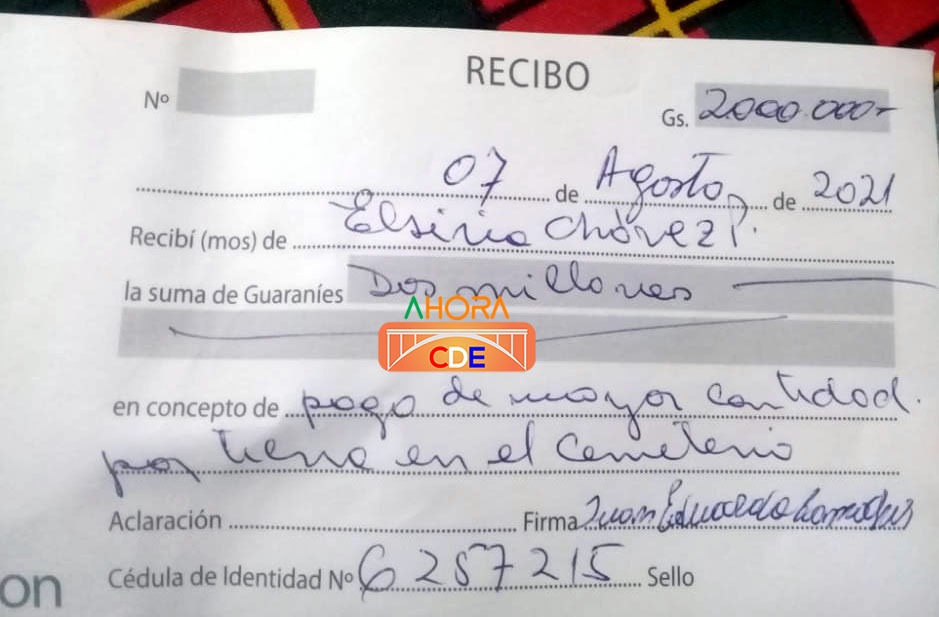 RECIBO
Nº
Gs. 2.000.000-
07 de Agosto de 2021
Recibí (mos) de Elsirio Chóvez P.
la suma de Guaraníes Dos millones
AHORA
CDE
en concepto de pago de mayor cantidad.
por tierra en el Cementerio
Aclaración Firma Juan Eduardo
Cédula de Identidad Nº 6257215 Sello
on